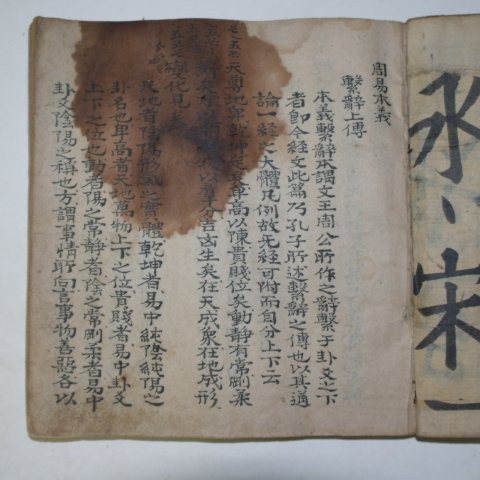 周易本義
繫辭上傳
本義繫辭本謂文王周公所作之辭繫于卦爻之下
者即今經文此篇乃孔子所述繫辭之傳也以其通
論一經之大體凡例故无經可附而自分上下云
天尊地卑乾坤定矣卑高以陳貴賤位矣動靜有常剛柔
斷矣方以類聚物以羣分吉凶生矣在天成象在地成形
變化見矣
天地者陰陽形氣之實體乾坤者易中純陰純陽之
卦名也卑高者天地萬物上下之位貴賤者易中卦爻
上下之位也動者陽之常靜者陰之常剛柔者易中
卦爻陰陽之稱也方謂事情所向言事物善惡各以
永
宋
一